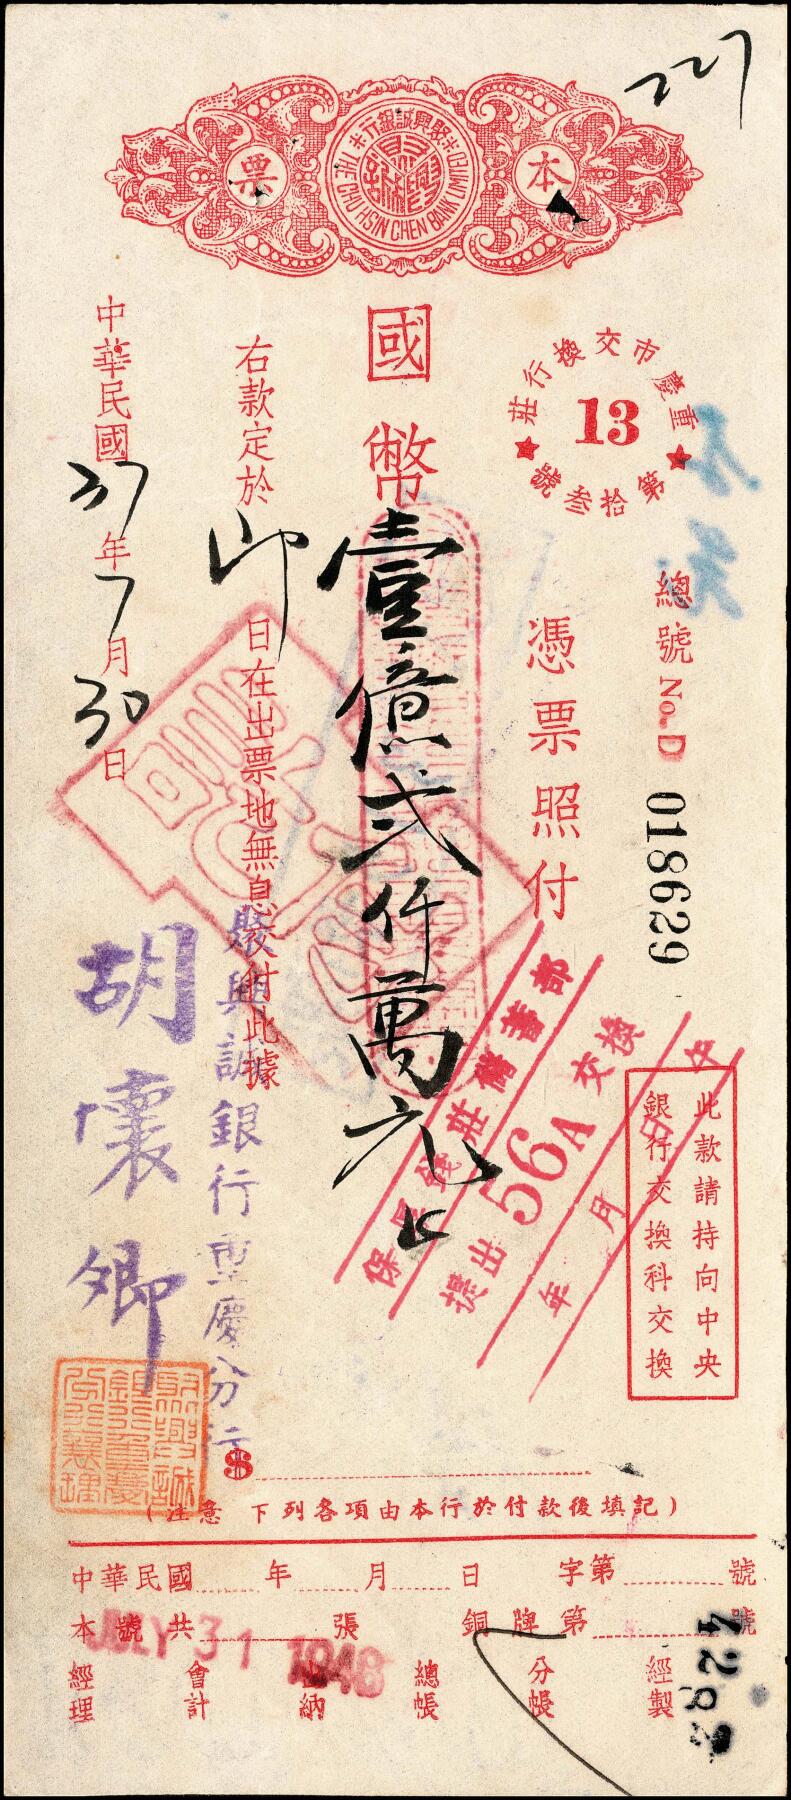 227
本票
聚興誠銀行
THE CHU HSIN CHEN BANK LIMITED
重慶市交換行莊
13
第拾叁號
總號 No. D 018629
憑票照付
國幣壹億弍仟萬元止
右款定於即日在出票地無息發付此據
中華民國37年7月30日
聚興誠銀行重慶分行
胡霱卿
提出 56A 交換
年 月 日 午
此款請持向中央
銀行交換科交換
$
(注意 下列各項由本行於付款後填記)
中華民國 年 月 日 字第 號
本號共 張 銅牌第 號
JULY 31 1948
經理 會計 出納 總帳 分帳 經製